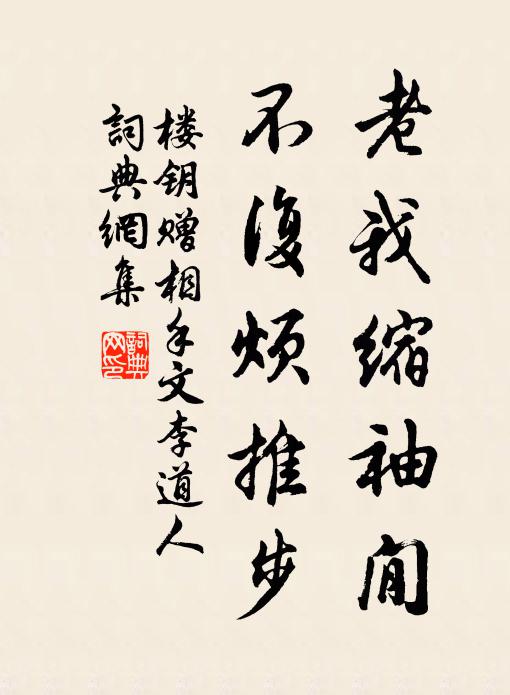 老我缩袖间
不復烦推步
楼钥赠相手文李道人
詞典網集
詞典網印